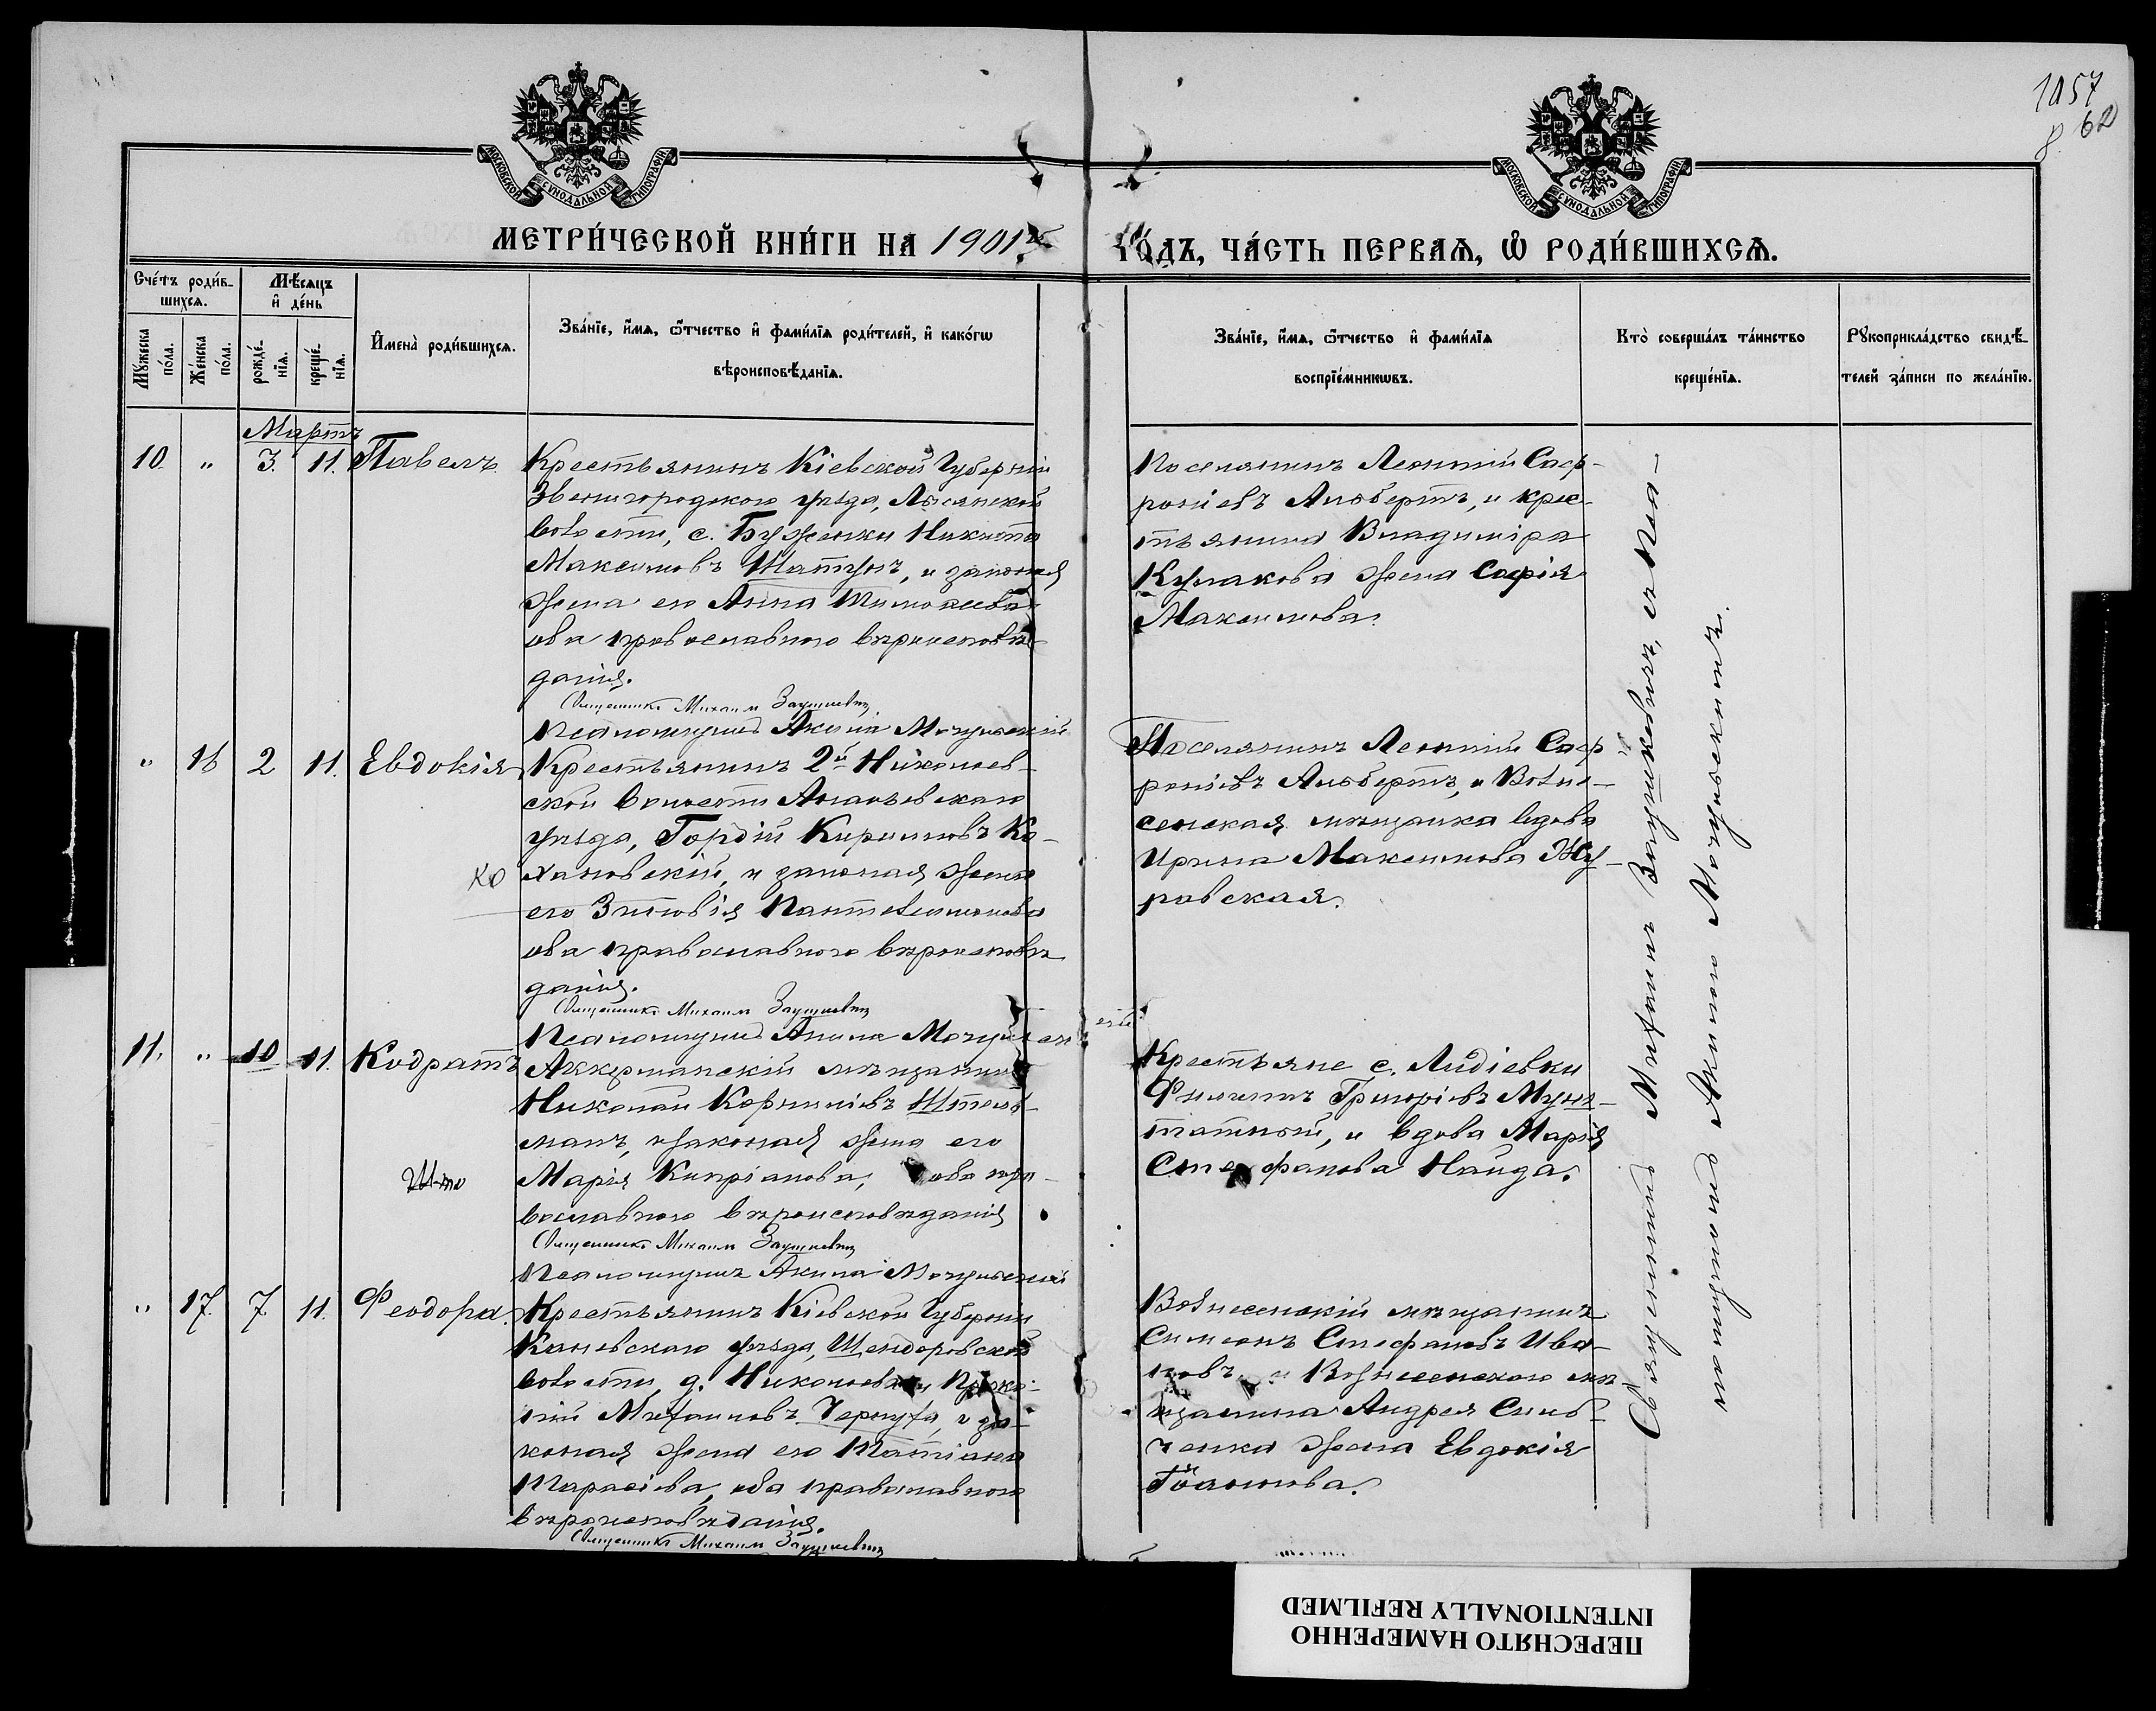 1057
62
МОСКОВСКОЙ СѴНОДАЛЬНОЙ ТИПОГРАФІИ
МОСКОВСКОЙ СѴНОДАЛЬНОЙ ТИПОГРАФІИ
МЕТРИ́ЧЕСКОЙ КНИ́ГИ НА 1901й
ГО́ДЪ, ЧА́СТЬ ПЕРВАѦ, Ѡ҆ РОДИ́ВШИХСѦ.
Сче́тъ роди́в-
шихсѧ.
Мѣ́сѧцъ
и҆ де́нь
Мꙋ́жеска
по́ла.
Же́нска
по́ла.
рожде́-
нїѧ.
креще́-
нїѧ.
И҆мена̀ роди́вшихсѧ.
Зва́нїе, и҆́мѧ, ѻ҆́тчество и҆ фами́лїѧ роди́телей, и҆ како́гѡ
вѣроисповѣ́данїѧ.
Зва́нїе, и҆́мѧ, ѻ҆́тчество и҆ фами́лїѧ
воспрїе́мникѡвъ.
Кто̀ соверша́лъ та́инство
креще́нїѧ.
Рꙋкоприкла́дство свидѣ́-
телей за́писи по жела́нїю.
Мартъ
10. " 3. 11. Павелъ.
Крестьянинъ Кіевской Губерніи
Звенигородскаго уѣзда, Лысянской
волости, с. Бужанки Никита
Максимовъ Шатунъ, и законная
жена его Анна Тимоѳеева
оба православнаго вѣроисповѣ-
данія.
Священникъ Михаилъ Заушкевичъ
Псаломщикъ Акила Мочульскій
Поселянинъ Леонтій Саф-
роніевъ Альбертъ, и крес-
тьянина Владиміра
Кулакова жена Софія
Максимова.
" 16 2 11. Евдокія
Крестьянинъ 2й Николаев-
ской волости Ананьевскаго
уѣзда, Гордій Кирилловъ Ко-
ко
хановскій, и законная жена
его Зиновія Пантелеимонова
оба православнаго вѣроисповѣ
данія.
Священникъ Михаилъ Заушкевичъ
Псаломщикъ Акила Мочульскій
Поселянинъ Леонтій Саф
роніевъ Альбертъ, и Возне-
сенская мѣщанка вдова
Ирина Максимова Жу-
ровская.
11. " 10 11. Кодратъ
Аккерманскій мѣщанинъ
Николай Корниліевъ Штель-
манъ, и законная жена его
Што
Марія Кипріанова, оба пра-
вославнаго вѣроисповѣданія
Священникъ Михаилъ Заушкевичъ
Псаломщикъ Акила Мочульскій
Крестьяне с. Лидіевки
Филиппъ Григоріевъ Мун-
татной, и вдова Марія
Стефанова Найда.
" 17. 7. 11. Феодора.
Крестьянинъ Кіевской Губерніи
Каневскаго уѣзда, Шендоровской
волости, д. Николаевки Проко-
пій Михаиловъ Чернуха, и за-
конная жена его Татіана
Тарасіева, оба православнаго
вѣроисповѣданія.
Священникъ Михаилъ Заушкевичъ
Вознесенскій мѣщанинъ
Симеонъ Стефановъ Ива-
новъ, и Вознесенскаго мѣ-
щанина Андрея Синь-
ченка жена Евдокія
Іоаннова.
Священникъ Михаилъ Заушкевичъ, съ Пса-
ломщикомъ Акилою Мочульскимъ.
ПЕРЕСНЯТО НАМЕРЕННО
INTENTIONALLY REFILMED